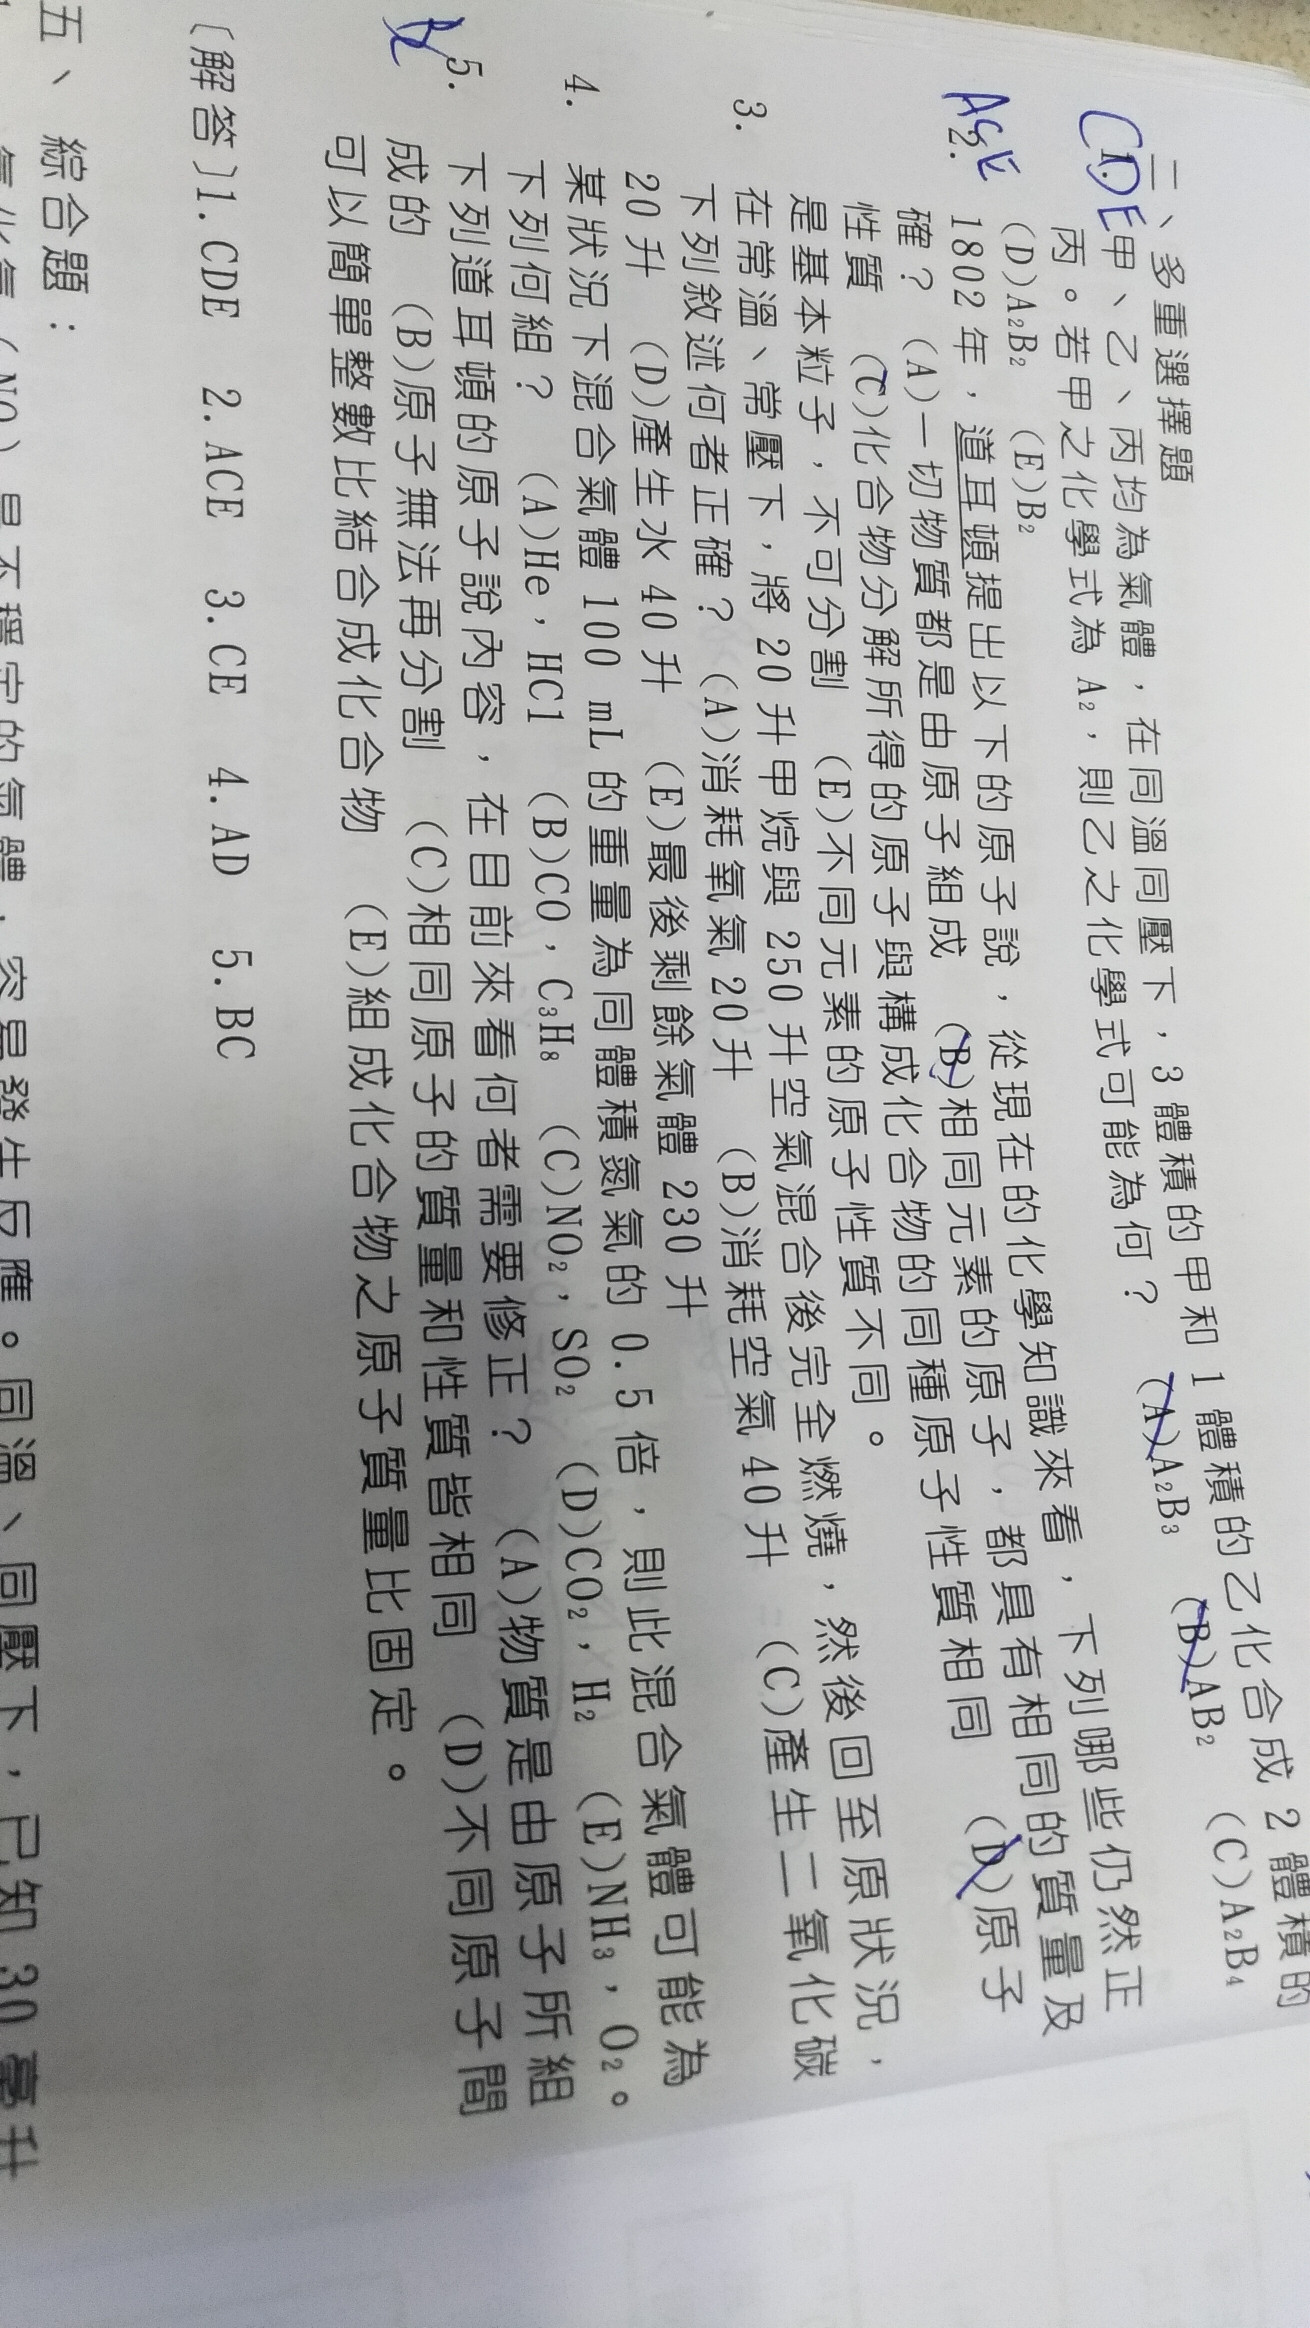 二、多重選擇題
CDE 1. 甲、乙、丙均為氣體，在同溫同壓下，3 體積的甲和 1 體積的乙化合成 2 體積的
丙。若甲之化學式為 A₂，則乙之化學式可能為何？ (A)A₂B₃ (B)AB₂ (C)A₂B₄
(D)A₂B₂ (E)B₂
ACE 2. 1802 年，道耳頓提出以下的原子說，從現在的化學知識來看，下列哪些仍然正
確？ (A)一切物質都是由原子組成 (B)相同元素的原子，都具有相同的質量及
性質 (C)化合物分解所得的原子與構成化合物的同種原子性質相同 (D)原子
是基本粒子，不可分割 (E)不同元素的原子性質不同。
3. 在常溫、常壓下，將 20 升甲烷與 250 升空氣混合後完全燃燒，然後回至原狀況，
下列敘述何者正確？ (A)消耗氧氣 20 升 (B)消耗空氣 40 升 (C)產生二氧化碳
20 升 (D)產生水 40 升 (E)最後剩餘氣體 230 升
4. 某狀況下混合氣體 100 mL 的重量為同體積氮氣的 0.5 倍，則此混合氣體可能為
下列何組？ (A)He，HCl (B)CO，C₃H₈ (C)NO₂，SO₂ (D)CO₂，H₂ (E)NH₃，O₂。
5. 下列道耳頓的原子說內容，在目前來看何者需要修正？ (A)物質是由原子所組
成的 (B)原子無法再分割 (C)相同原子的質量和性質皆相同 (D)不同原子間
可以簡單整數比結合成化合物 (E)組成化合物之原子質量比固定。
〔解答〕1.CDE 2.ACE 3.CE 4.AD 5.BC
五、綜合題：
氧化氮（NO）是不穩定的氣體，容易發生反應。同溫、同壓下，已知 30 毫升